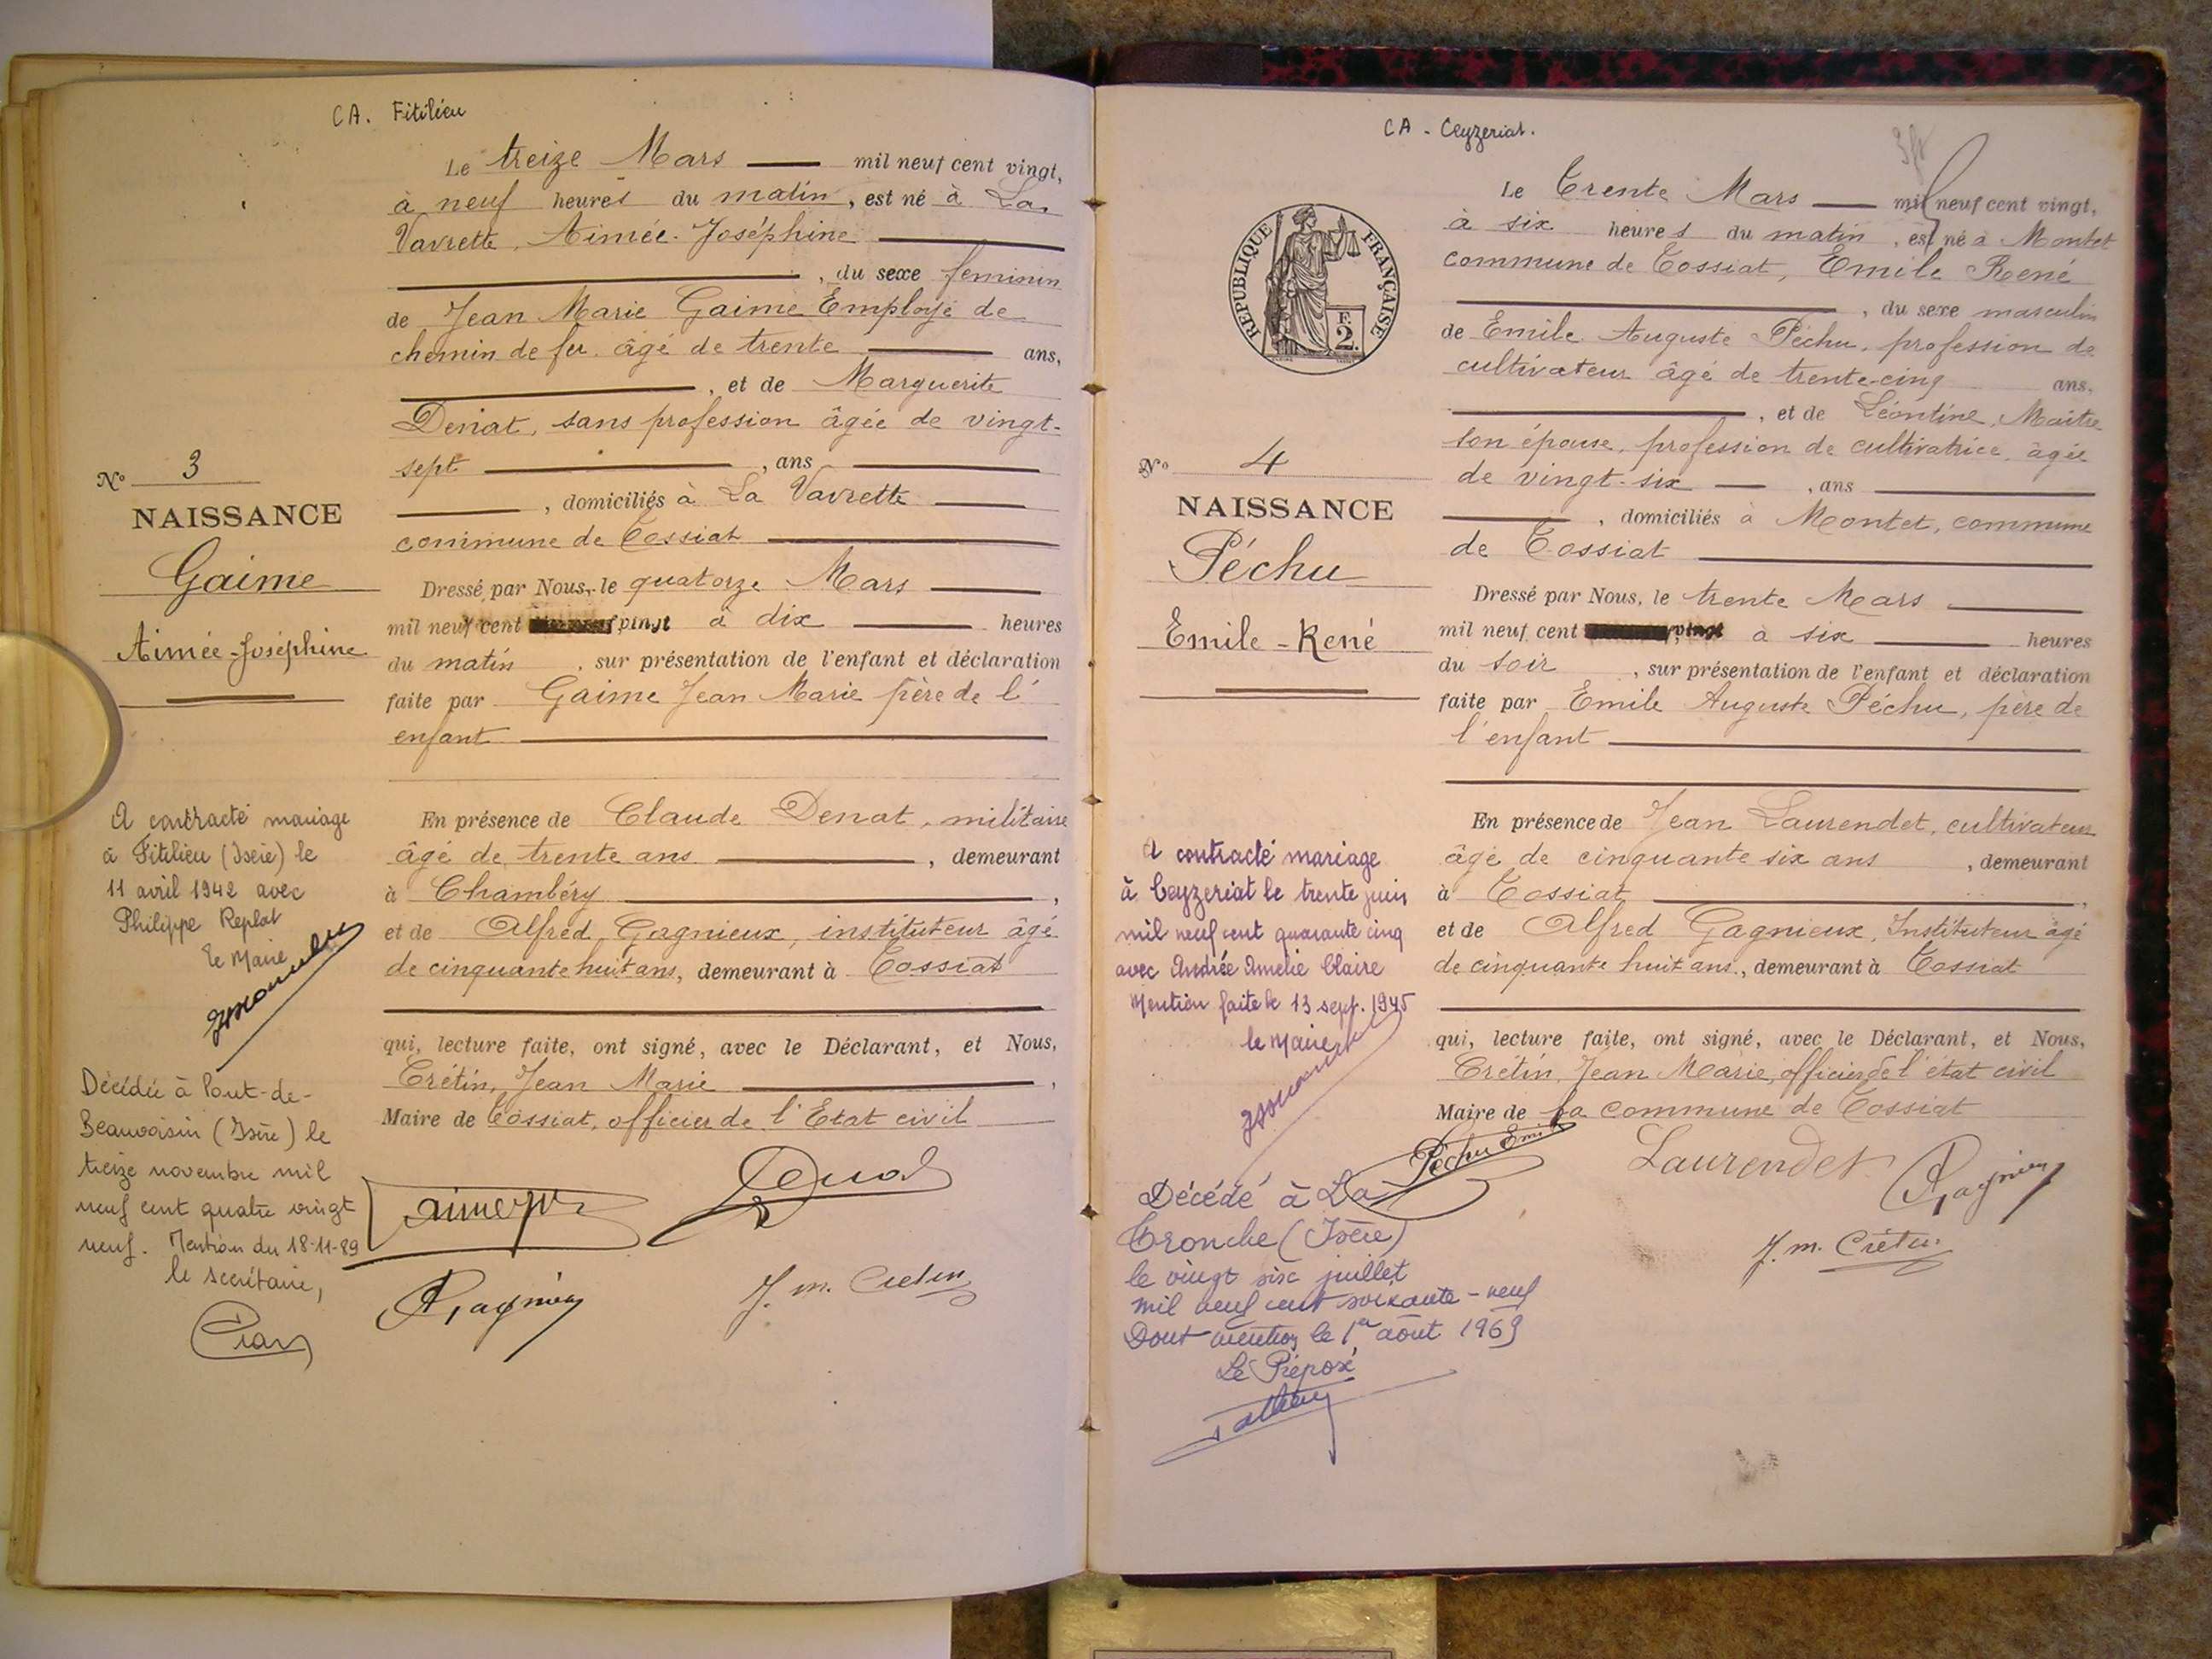 CA. Fitilieu
Le treize Mars mil neuf cent vingt,
à neuf heures du matin, est né à La
Vavrette, Aimée-Joséphine
, du sexe feminin
de Jean Marie Gaime Employé de
chemin de fer. âgé de trente ans,
, et de Marguerite
Denat, sans profession âgée de vingt-
sept , ans
, domiciliés à La Vavrette
commune de Tossiat
Dressé par Nous, le quatorze Mars
mil neuf cent vingt à dix heures
du matin , sur présentation de l'enfant et déclaration
faite par Gaime Jean Marie père de l'
enfant
En présence de Claude Denat, militaire
âgé de trente ans , demeurant
à Chambéry ,
et de Alfred Gagnieux, instituteur âgé
de cinquante huit ans, demeurant à Tossiat
qui, lecture faite, ont signé, avec le Déclarant, et Nous,
Crétin, Jean Marie ,
Maire de Tossiat, officier de l'Etat civil
Denat
J. m. Cretin
No 3
NAISSANCE
Gaime
Aimée-Joséphine
A contracté mariage
à Fitilieu (Isère) le
11 avril 1942 avec
Philippe Replat
Le Maire
Décédée à Pont-de-
Beauvoisin (Isère) le
treize novembre mil
neuf cent quatre vingt
neuf. Mention du 18-11-89
le secrétaire,
CA - Ceyzeriat.
Le Trente Mars mil neuf cent vingt,
à six heures du matin, est né à Montet
commune de Tossiat, Emile René
, du sexe masculin
de Emile Auguste Péchu, profession de
cultivateur âgé de trente-cinq ans,
, et de Léontine, Maitre
son épouse, profession de cultivatrice, âgée
de vingt-six , ans
, domiciliés à Montet, commune
de Tossiat
Dressé par Nous, le trente Mars
mil neuf cent vingt à six heures
du soir , sur présentation de l'enfant et déclaration
faite par Emile Auguste Péchu, père de
l'enfant
En présence de Jean Laurendet, cultivateur
âgé de cinquante six ans , demeurant
à Tossiat ,
et de Alfred Gagnieux, Instituteur âgé
de cinquante huit ans, demeurant à Tossiat
qui, lecture faite, ont signé, avec le Déclarant, et Nous,
Crétin, Jean Marie, officier de l'état civil
Maire de la commune de Tossiat
Péchu Emile
Laurendet
J. m. Crétin
REPUBLIQUE FRANÇAISE
F.
2.
No 4
NAISSANCE
Péchu
Emile-René
A contracté mariage
à Ceyzeriat le trente juin
mil neuf cent quarante cinq
avec Andrée Amélie Claire
Mention faite le 13 sept. 1945
le Maire
Décédé à La
Tronche (Isère)
le vingt six juillet
mil neuf cent soixante-neuf
Dont mention le 1er août 1969
Le Préposé